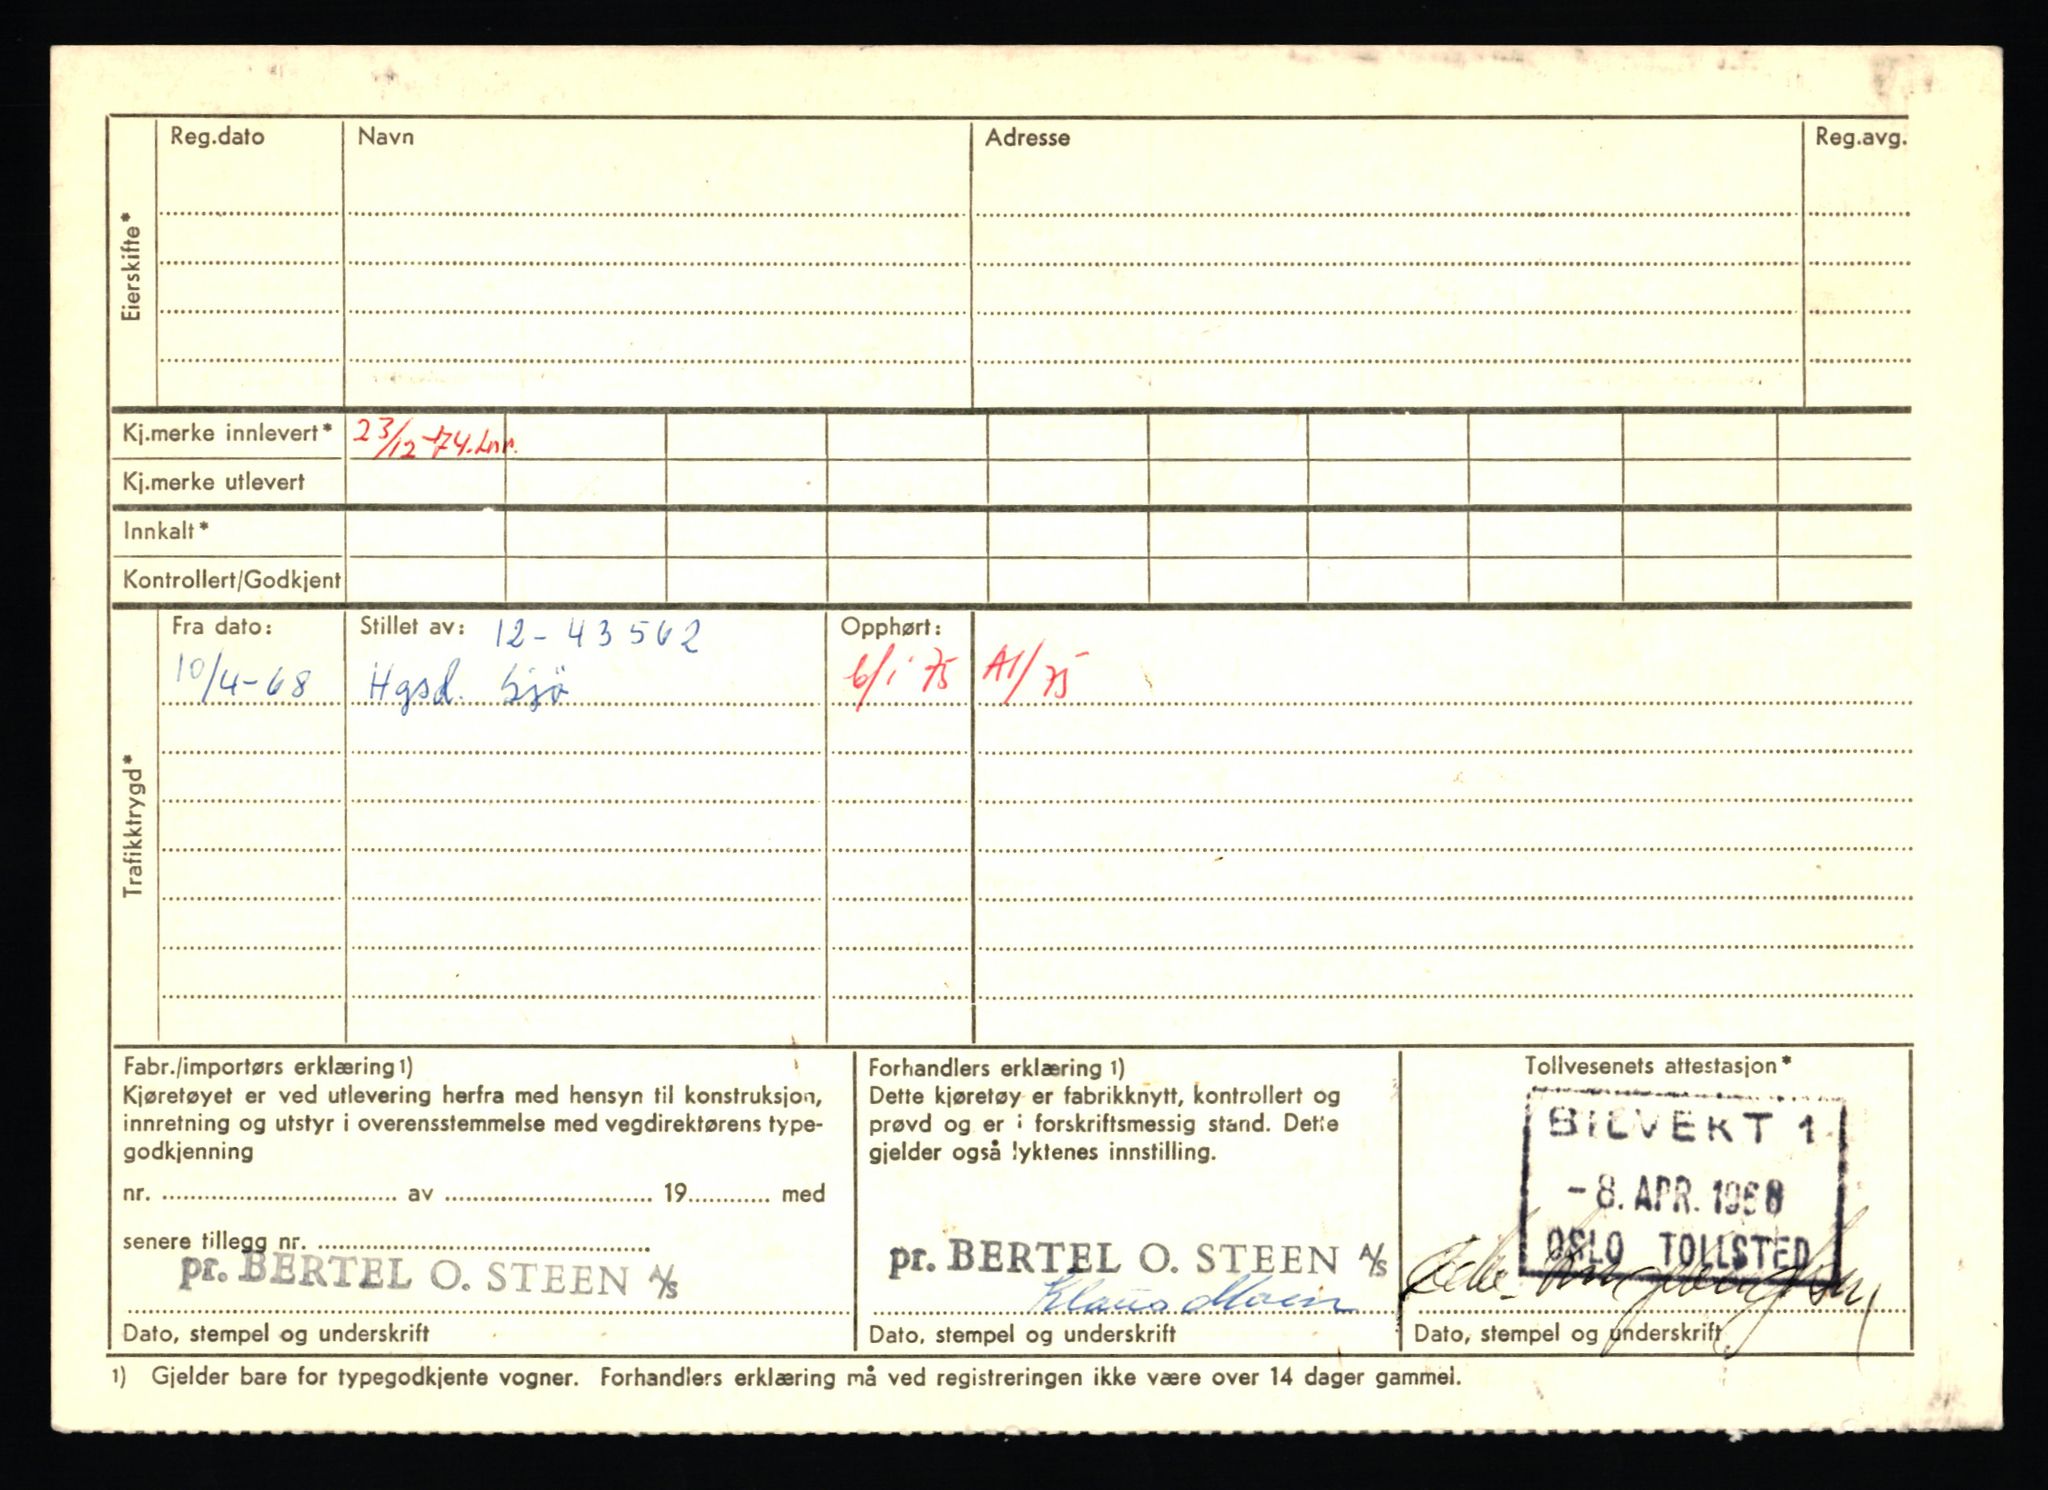 Reg.dato Navn Adresse Reg.avg.
Eierskifte*
Kj.merke innlevert* 23/12-74. Lnr.
Kj.merke utlevert
Innkalt*
Kontrollert/Godkjent
Trafikktrygd*
Fra dato: Stillet av: 12-43562 Opphørt:
10/4-68 Hgsd. Sjø 6/1 75 A1/75
Fabr./importørs erklæring 1)
Kjøretøyet er ved utlevering herfra med hensyn til konstruksjon,
innretning og utstyr i overensstemmelse med vegdirektørens type-
godkjenning
nr. ........ av ........ 19........ med
senere tillegg nr. ........
pr. BERTEL O. STEEN A/S
Dato, stempel og underskrift
Forhandlers erklæring 1)
Dette kjøretøy er fabrikknytt, kontrollert og
prøvd og er i forskriftsmessig stand. Dette
gjelder også lyktenes innstilling.
pr. BERTEL O. STEEN A/S
Klaus Moen
Dato, stempel og underskrift
Tollvesenets attestasjon*
BILVERT 1
-8. APR. 1968
OSLO TOLLSTED
Dato, stempel og underskrift
1) Gjelder bare for typegodkjente vogner. Forhandlers erklæring må ved registreringen ikke være over 14 dager gammel.